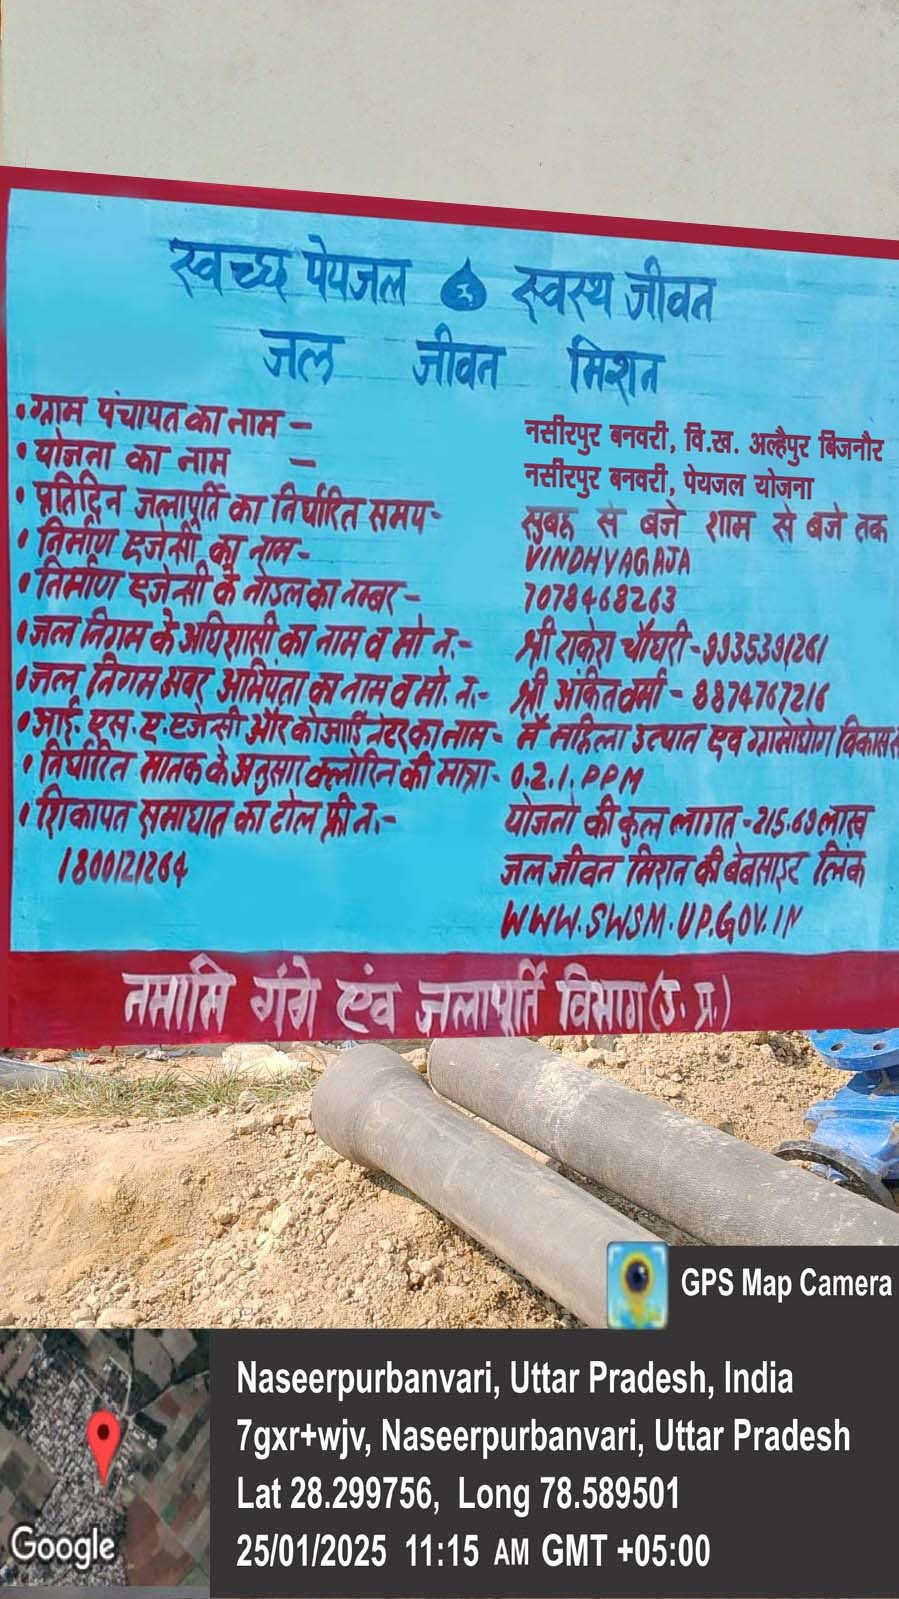 स्वच्छ पेयजल स्वस्थ जीवन
जल जीवन मिशन
• ग्राम पंचायत का नाम - नसीरपुर बनवरी, वि.ख. अल्हैपुर बिजनौर
• योजना का नाम - नसीरपुर बनवरी, पेयजल योजना
• प्रतिदिन जलापूर्ति का निर्धारित समय- सुबह से बजे शाम से बजे तक
• निर्माण एजेन्सी का नाम- VINDHVAGAJA
• निर्माण एजेन्सी के नोडल का नम्बर- 7078468263
• जल निगम के अधिशासी का नाम व मो न.- श्री राकेश चौधरी-9935391261
• जल निगम अवर अभियंता का नाम व मो. न.- श्री अंकित वर्मा - 8874767216
• आई. एस. ए. एजेन्सी और कोआर्डिनेटर का नाम- मै महिला उत्थान एव ग्रामोद्योग विकास
• निर्धारित मानक के अनुसार क्लोरिन की मात्रा- 0.2.1. PPM
• शिकायत समाधान का टोल फ्री न.- योजना की कुल लागत-215.69 लाख
1800121264 जल जीवन मिशन की बेबसाइट लिंक
WWW.SWSM.UP.GOV.IN
नमामि गंगे एंव जलापूर्ति विभाग (उ. प्र.)
GPS Map Camera
Naseerpurbanvari, Uttar Pradesh, India
7gxr+wjv, Naseerpurbanvari, Uttar Pradesh
Lat 28.299756, Long 78.589501
25/01/2025 11:15 AM GMT +05:00
Google